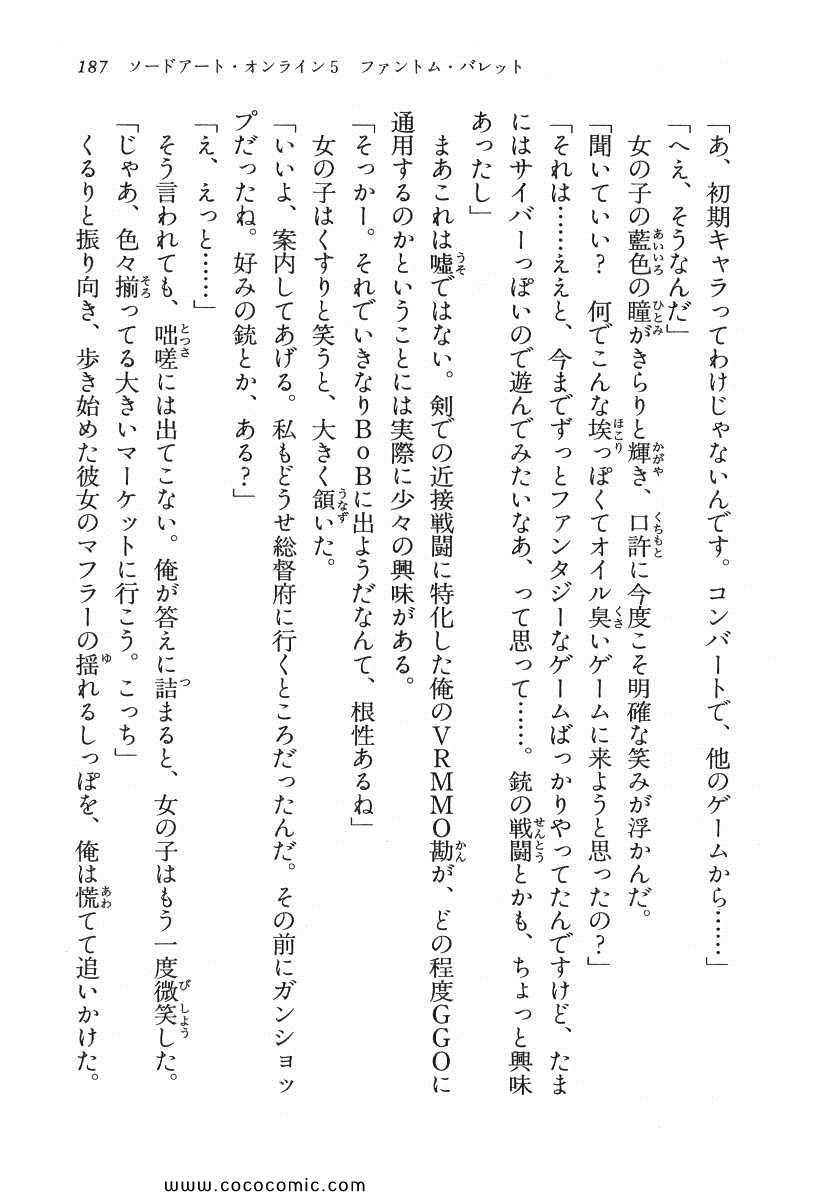 187　ソードアート・オンライン5　ファントム・バレット
「あ、初期キャラってわけじゃないんです。コンバートで、他のゲームから……」
「へぇ、そうなんだ」
　女の子の藍色の瞳がきらりと輝き、口許に今度こそ明確な笑みが浮かんだ。
「聞いていい？　何でこんな埃っぽくてオイル臭いゲームに来ようと思ったの？」
「それは……ええと、今までずっとファンタジーなゲームばっかりやってたんですけど、たま
にはサイバーっぽいので遊んでみたいなあ、って思って……。銃の戦闘とかも、ちょっと興味
あったし」
　まあこれは嘘ではない。剣での近接戦闘に特化した俺のＶＲＭＭＯ勘が、どの程度ＧＧＯに
通用するのかということには実際に少々の興味がある。
「そっかー。それでいきなりＢｏＢに出ようだなんて、根性あるね」
　女の子はくすりと笑うと、大きく頷いた。
「いいよ、案内してあげる。私もどうせ総督府に行くところだったんだ。その前にガンショッ
プだったね。好みの銃とか、ある？」
「え、えっと……」
　そう言われても、咄嗟には出てこない。俺が答えに詰まると、女の子はもう一度微笑した。
「じゃあ、色々揃ってる大きいマーケットに行こう。こっち」
　くるりと振り向き、歩き始めた彼女のマフラーの揺れるしっぽを、俺は慌てて追いかけた。
www.cococomic.com